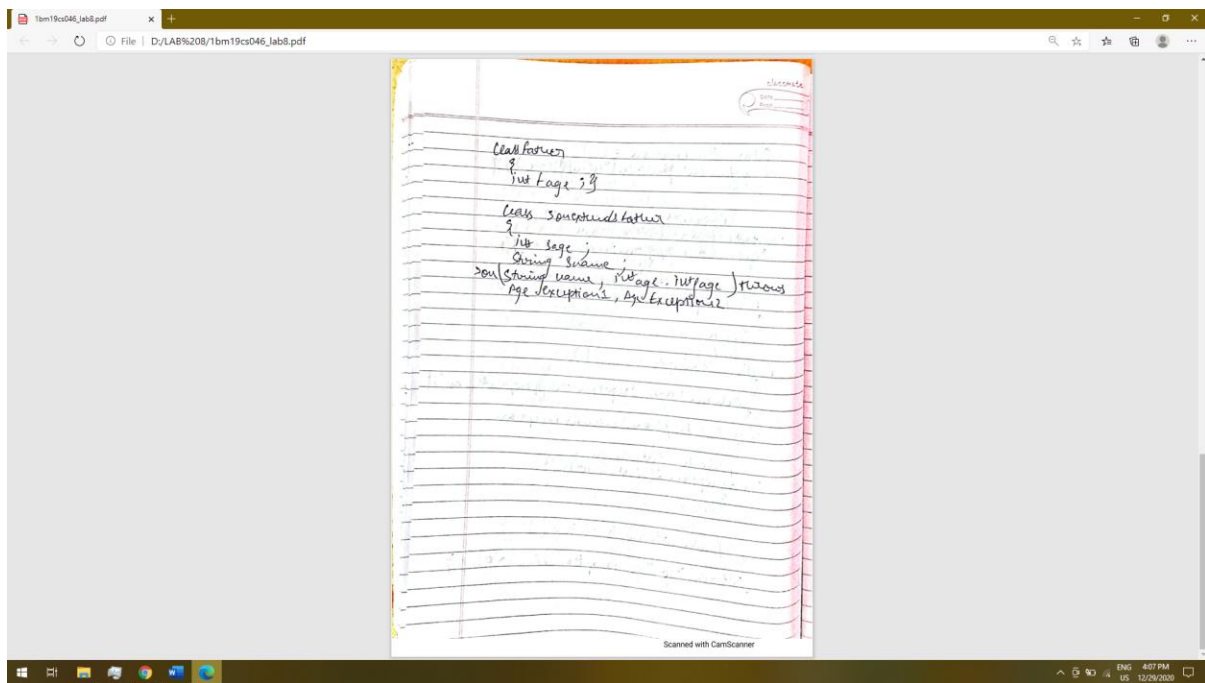 1bm19cs046_lab8.pdf
File D:/LAB%208/1bm19cs046_lab8.pdf
classmate
Date
Page
Class father
{
int fage ; }
Class son extends father
{
int sage ;
String sname ;
son (String name, int age . int fage ) throws
Age exception1, Age Exception2
Scanned with CamScanner
ENG 4:07 PM
US 12/29/2020